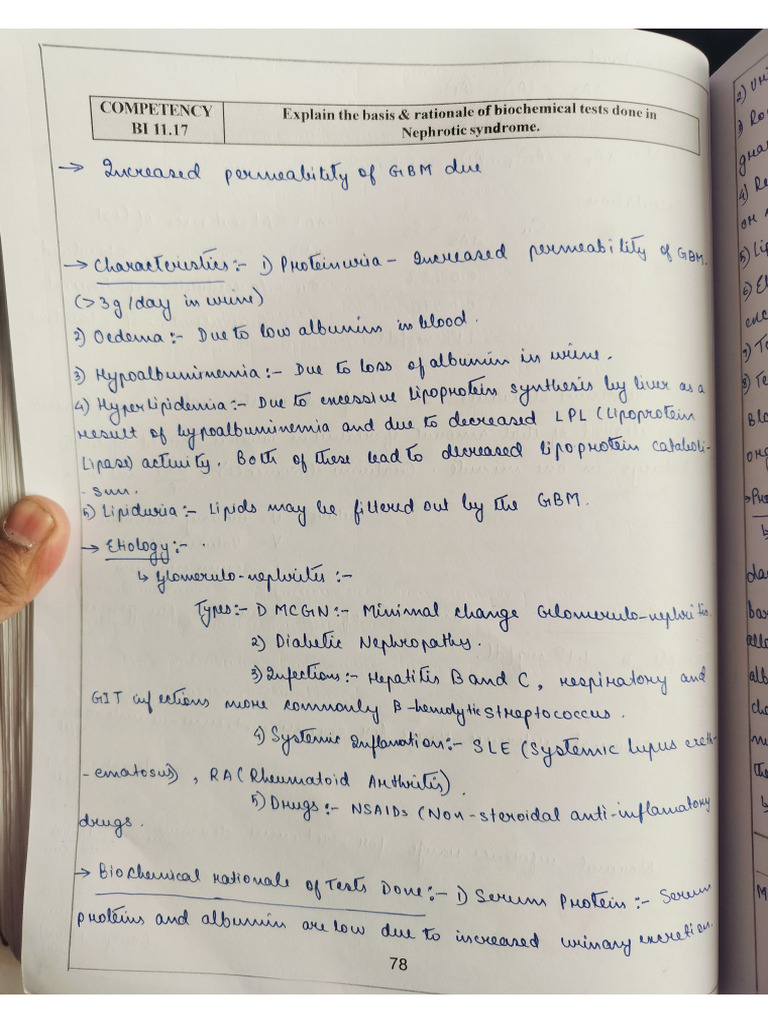 COMPETENCY BI 11.17
Explain the basis & rationale of biochemical tests done in
Nephrotic syndrome.
→ Increased permeability of GBM due
→ Characteristics:- 1) Proteinuria - Increased permeability of GBM.
(>3g/day in urine)
2) Oedema:- Due to low albumin in blood.
3) Hypoalbuminemia:- Due to loss of albumin in urine.
4) Hyperlipidemia:- Due to excessive lipoprotein synthesis by liver as a
result of hypoalbuminemia and due to decreased LPL (Lipoprotein
Lipase) activity. Both of these lead to decreased lipoprotein cataboli-
- sm.
5) Lipiduria:- Lipids may be filtered out by the GBM.
→ Etiology:-
↳ Glomerulo-nephrites:-
Types:- 1) MCGN:- Minimal change Glomerulo-nephritis.
2) Diabetic Nephropathy.
3) Infections:- Hepatitis B and C, respiratory and
GIT infections more commonly B-hemolytic streptococcus.
4) Systemic Inflamation:- SLE (Systemic lupus eryth-
-ematosus), RA (Rheumatoid Arthritis).
5) Drugs:- NSAIDs (Non-steroidal anti-inflamatory
drugs.
→ Biochemical rationale of Tests Done:- 1) Serum Protein:- Serum
proteins and albumin are low due to increased urinary excretion.
78